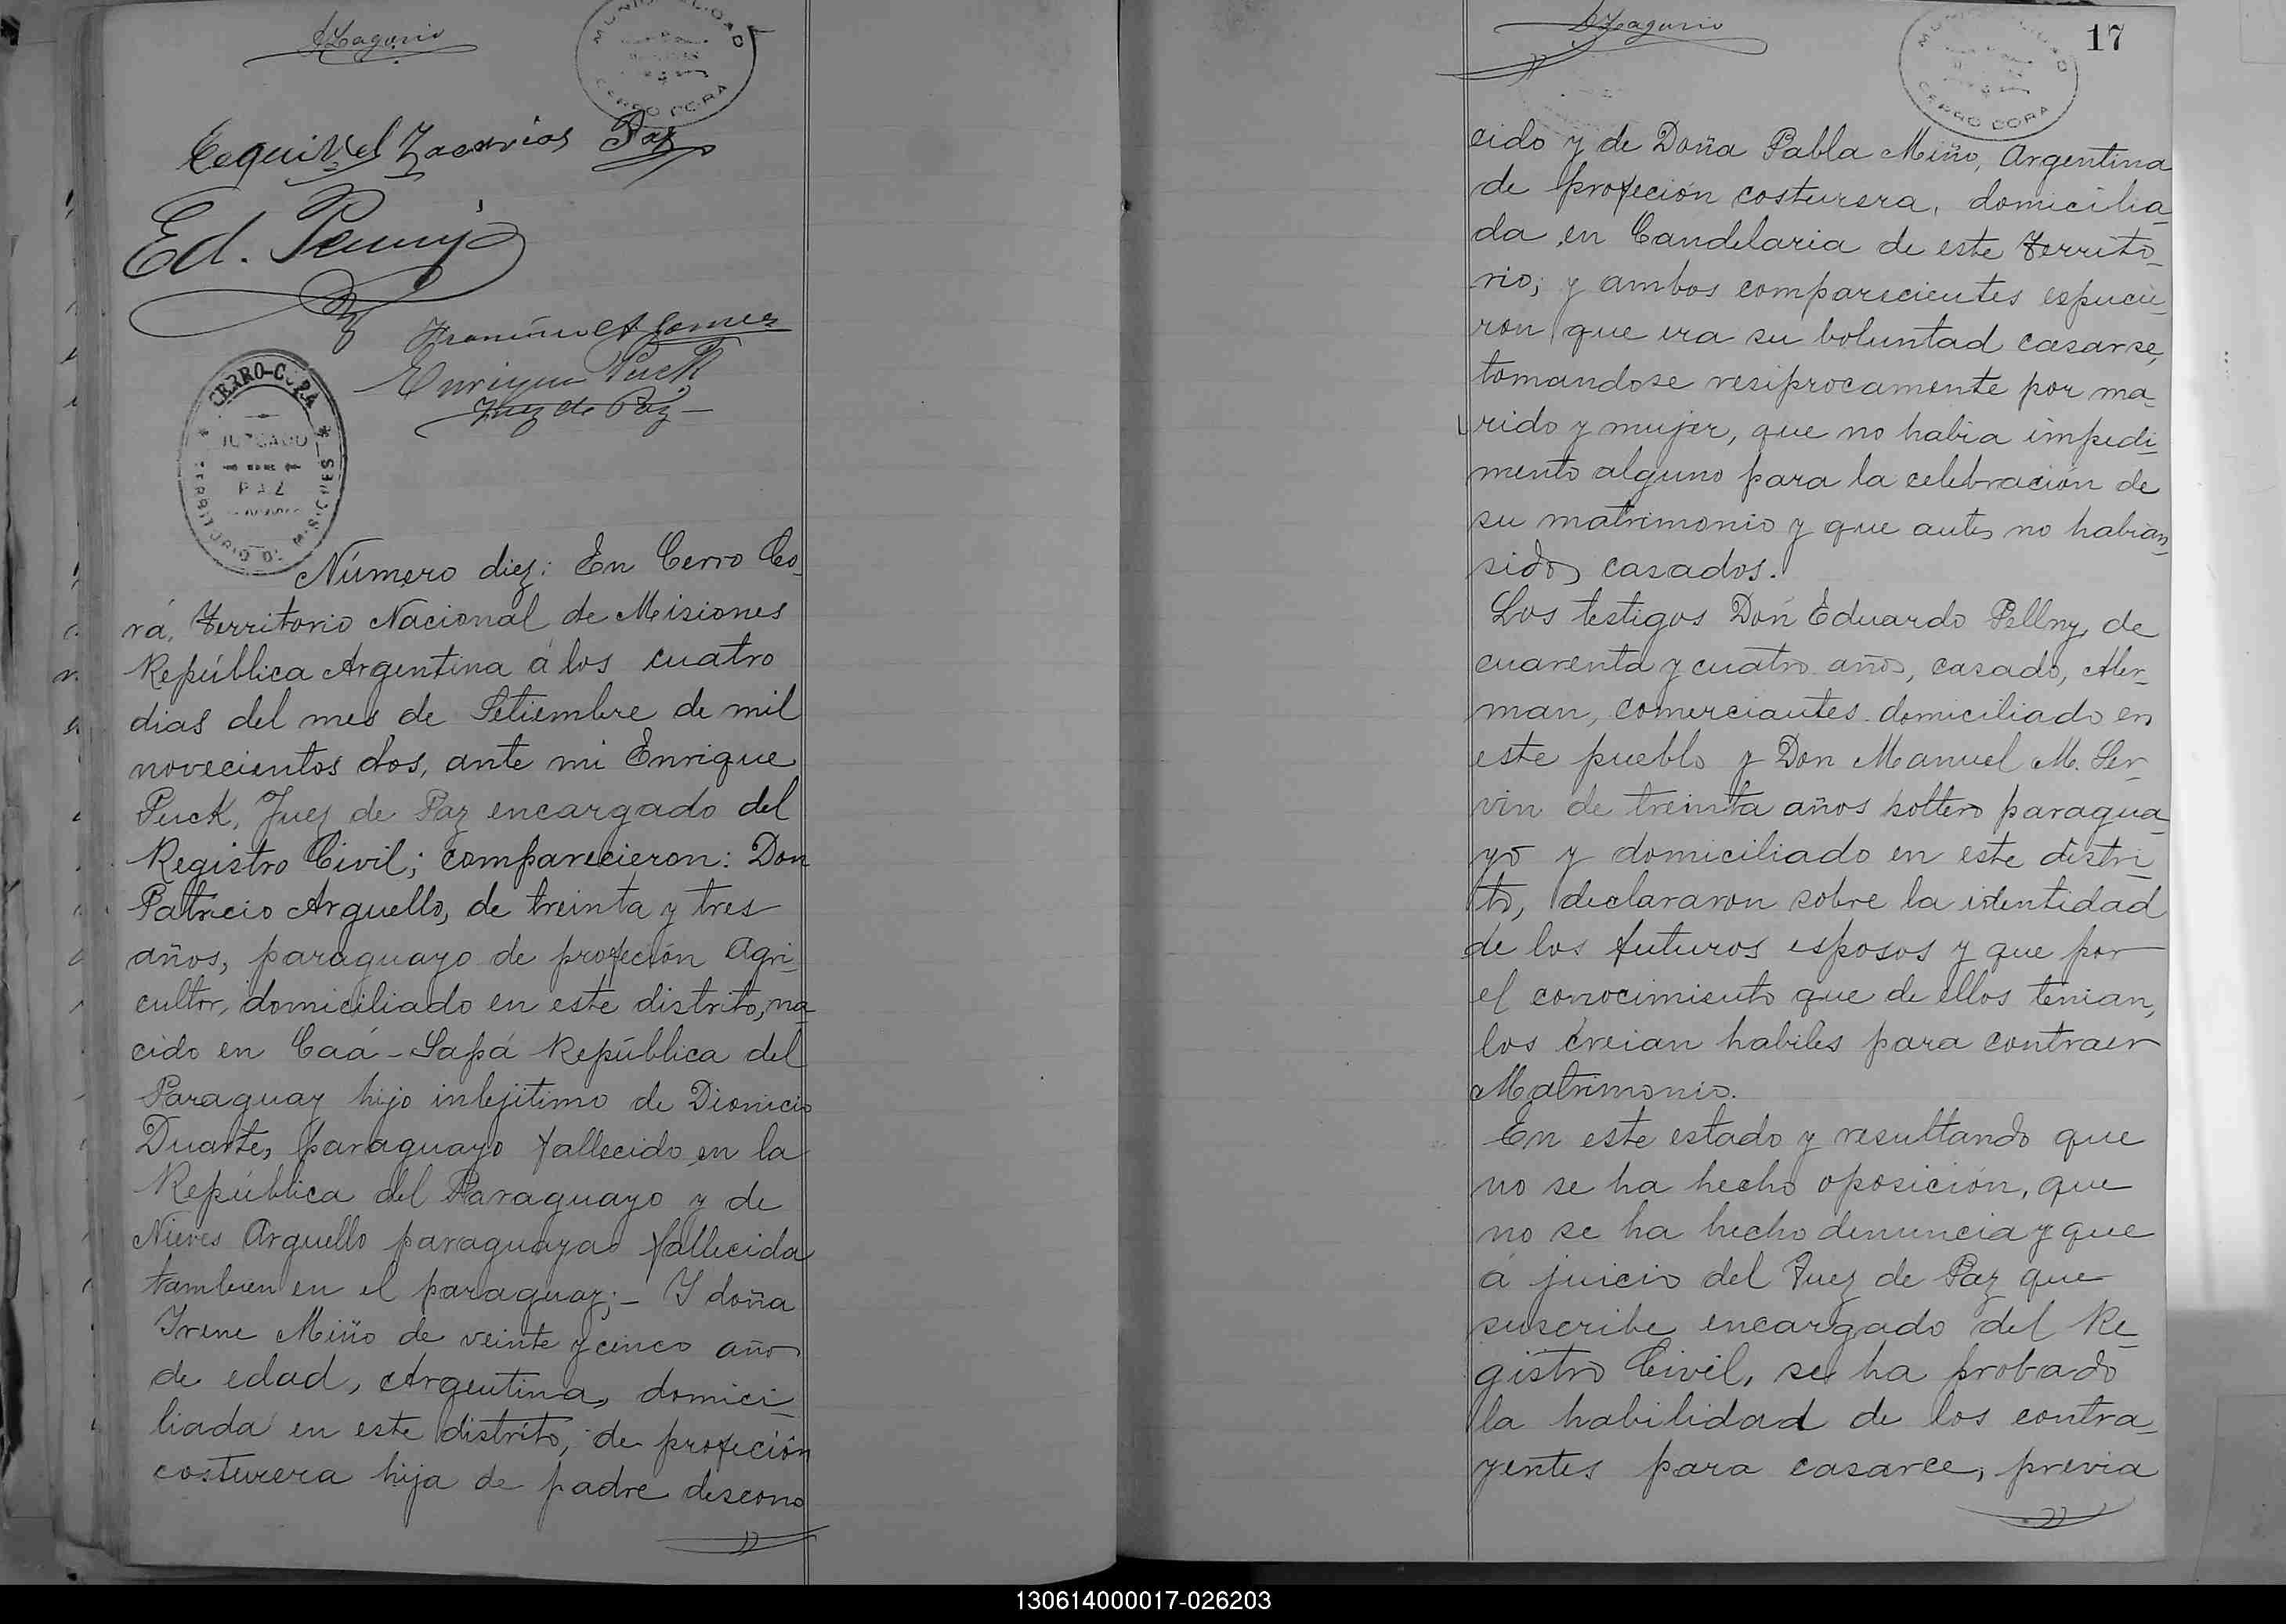 MUNICIPALIDAD
CERRO CORA
Zacarias Paz
Ed.
Enrique Puck
Juez de Paz
CERRO-CORA
JUZGADO
DE
PAZ
TERRITORIO DE MISIONES
Número diez: En Cerro Co-
rá, Territorio Nacional de Misiones
República Argentina á los cuatro
dias del mes de Setiembre de mil
novecientos dos, ante mi Enrique
Puck, Juez de Paz encargado del
Registro Civil; comparecieron: Don
Patricio Arguello, de treinta y tres
años, paraguayo de profeción Agri-
cultor, domiciliado en este distrito, na-
cido en Caá-Sapá República del
Paraguay hijo inlejitimo de Dionicio
Duarte, paraguayo fallecido en la
República del Paraguayo y de
Nieves Arguello paraguaya fallecida
tambien en el paraguay;- Y doña
Irene Miño de veinte y cinco año
de edad, Argentina, domici-
liada en este distrito, de profeción
costurera hija de padre descono
17
MUNICIPALIDAD
CERRO CORA
cido y de Doña Pabla Miño, Argentina
de profeción costurera, domicilia-
da en Candelaria de este territo-
rio; y ambos comparecientes espucie-
ron que era su boluntad casarse,
tomandose resiprocamente por ma-
rido y mujer, que no habia impedi-
mento alguno para la celebración de
su matrimonio y que antes no habian
sido casados.
Los testigos Don Eduardo Pellny, de
cuarenta y cuatro años, casado, Ale-
man, comerciantes domiciliado en
este pueblo y Don Manuel M. Ser-
vin de treinta años soltero paragua-
yo y domiciliado en este distri-
to, declararon sobre la identidad
de los futuros esposos y que por
el conocimiento que de ellos tenian,
los creian habiles para contraer
Matrimonio.
En este estado y resultando que
no se ha hecho oposición, que
no se ha hecho denuncia y que
á juicio del Juez de Paz que
suscribe encargado del Re-
gistro Civil, se ha probado
la habilidad de los contra-
yentes para casarce, previa
130614000017-026203